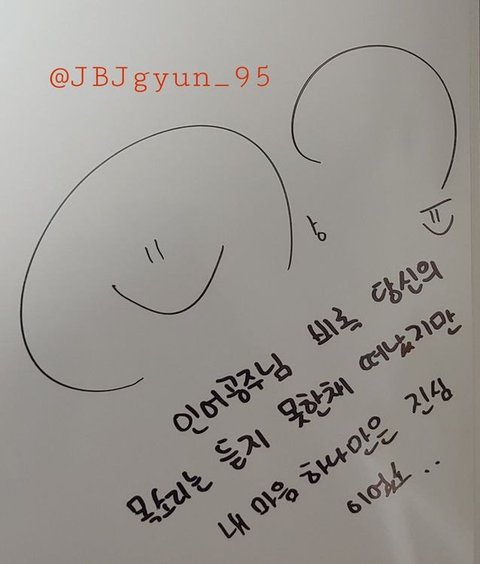 @JBJgyun_95
인어공주님 비록 당신의
목소리는 듣지 못한채 떠났지만
내 마음 하나만은 진심
이었소..